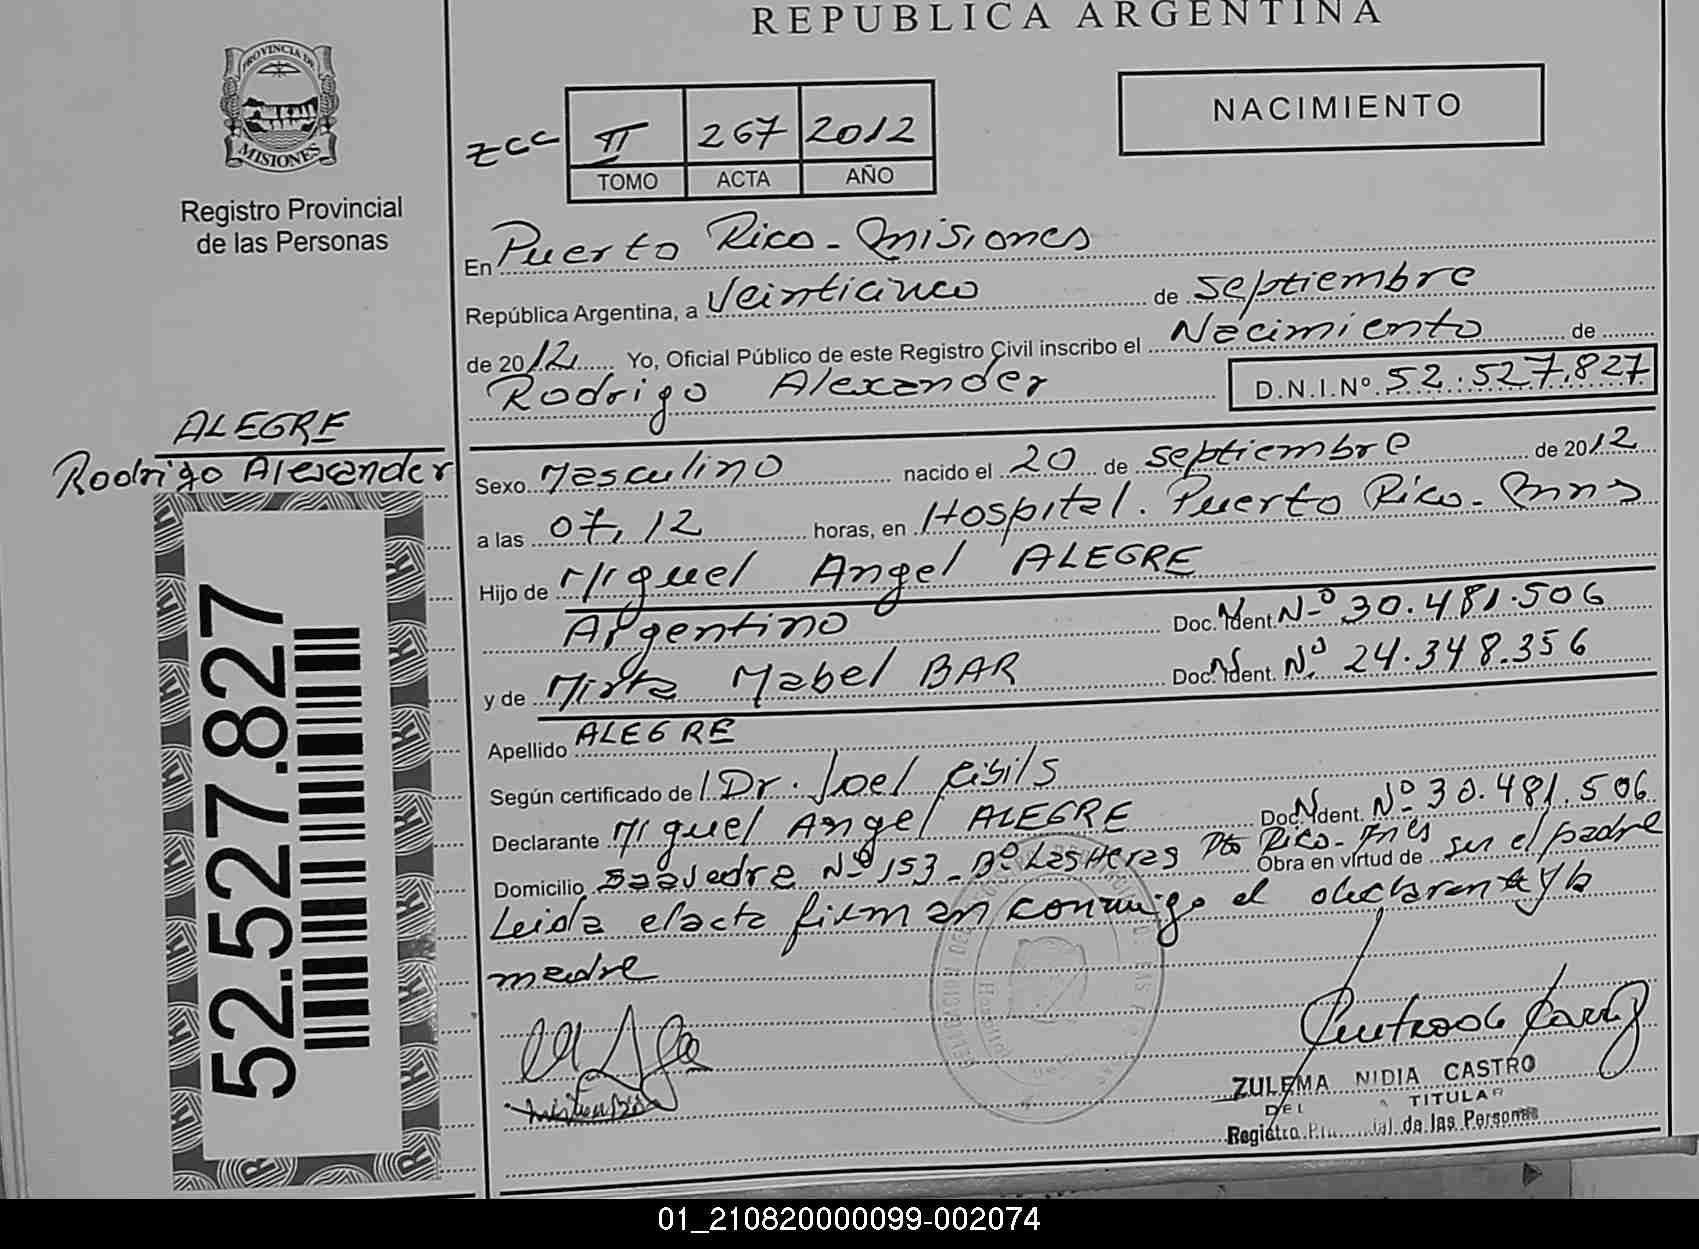 REPUBLICA ARGENTINA
PROVINCIA DE
MISIONES
Registro Provincial
de las Personas
NACIMIENTO
zcc II 267 2012
TOMO ACTA AÑO
En Puerto Rico - Misiones
República Argentina, a Veinticinco de septiembre
de 2012 Yo, Oficial Público de este Registro Civil inscribo el Nacimiento de
Rodrigo Alexander D.N.I.Nº 52.527.827
ALEGRE
Rodrigo Alexander
Sexo Masculino nacido el 20 de septiembre de 2012
a las 07,12 horas, en Hospital. Puerto Rico - Mnes
Hijo de Miguel Angel ALEGRE
Argentino Doc. Ident. Nº 30.481.506
y de Mirta Mabel BAR Doc. Ident. Nº 24.348.356
Apellido ALEGRE
Según certificado de Dr. Joel
Declarante Miguel Angel ALEGRE Doc. Ident. Nº 30.481.506
Domicilio Saavedra Nº 153 - Bº Las Heras Pto Rico - Mnes Obra en virtud de ser el padre
Leida el acta firman conmigo el declarante y la
madre
52.527.827
ZULEMA NIDIA CASTRO
TITULAR
Registro de las Personas
01_210820000099-002074